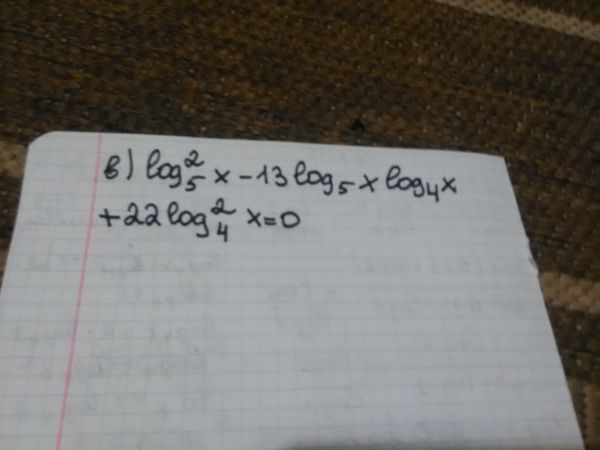 в) log₅² x - 13 log₅ x log₄ x
+ 22 log₄² x = 0